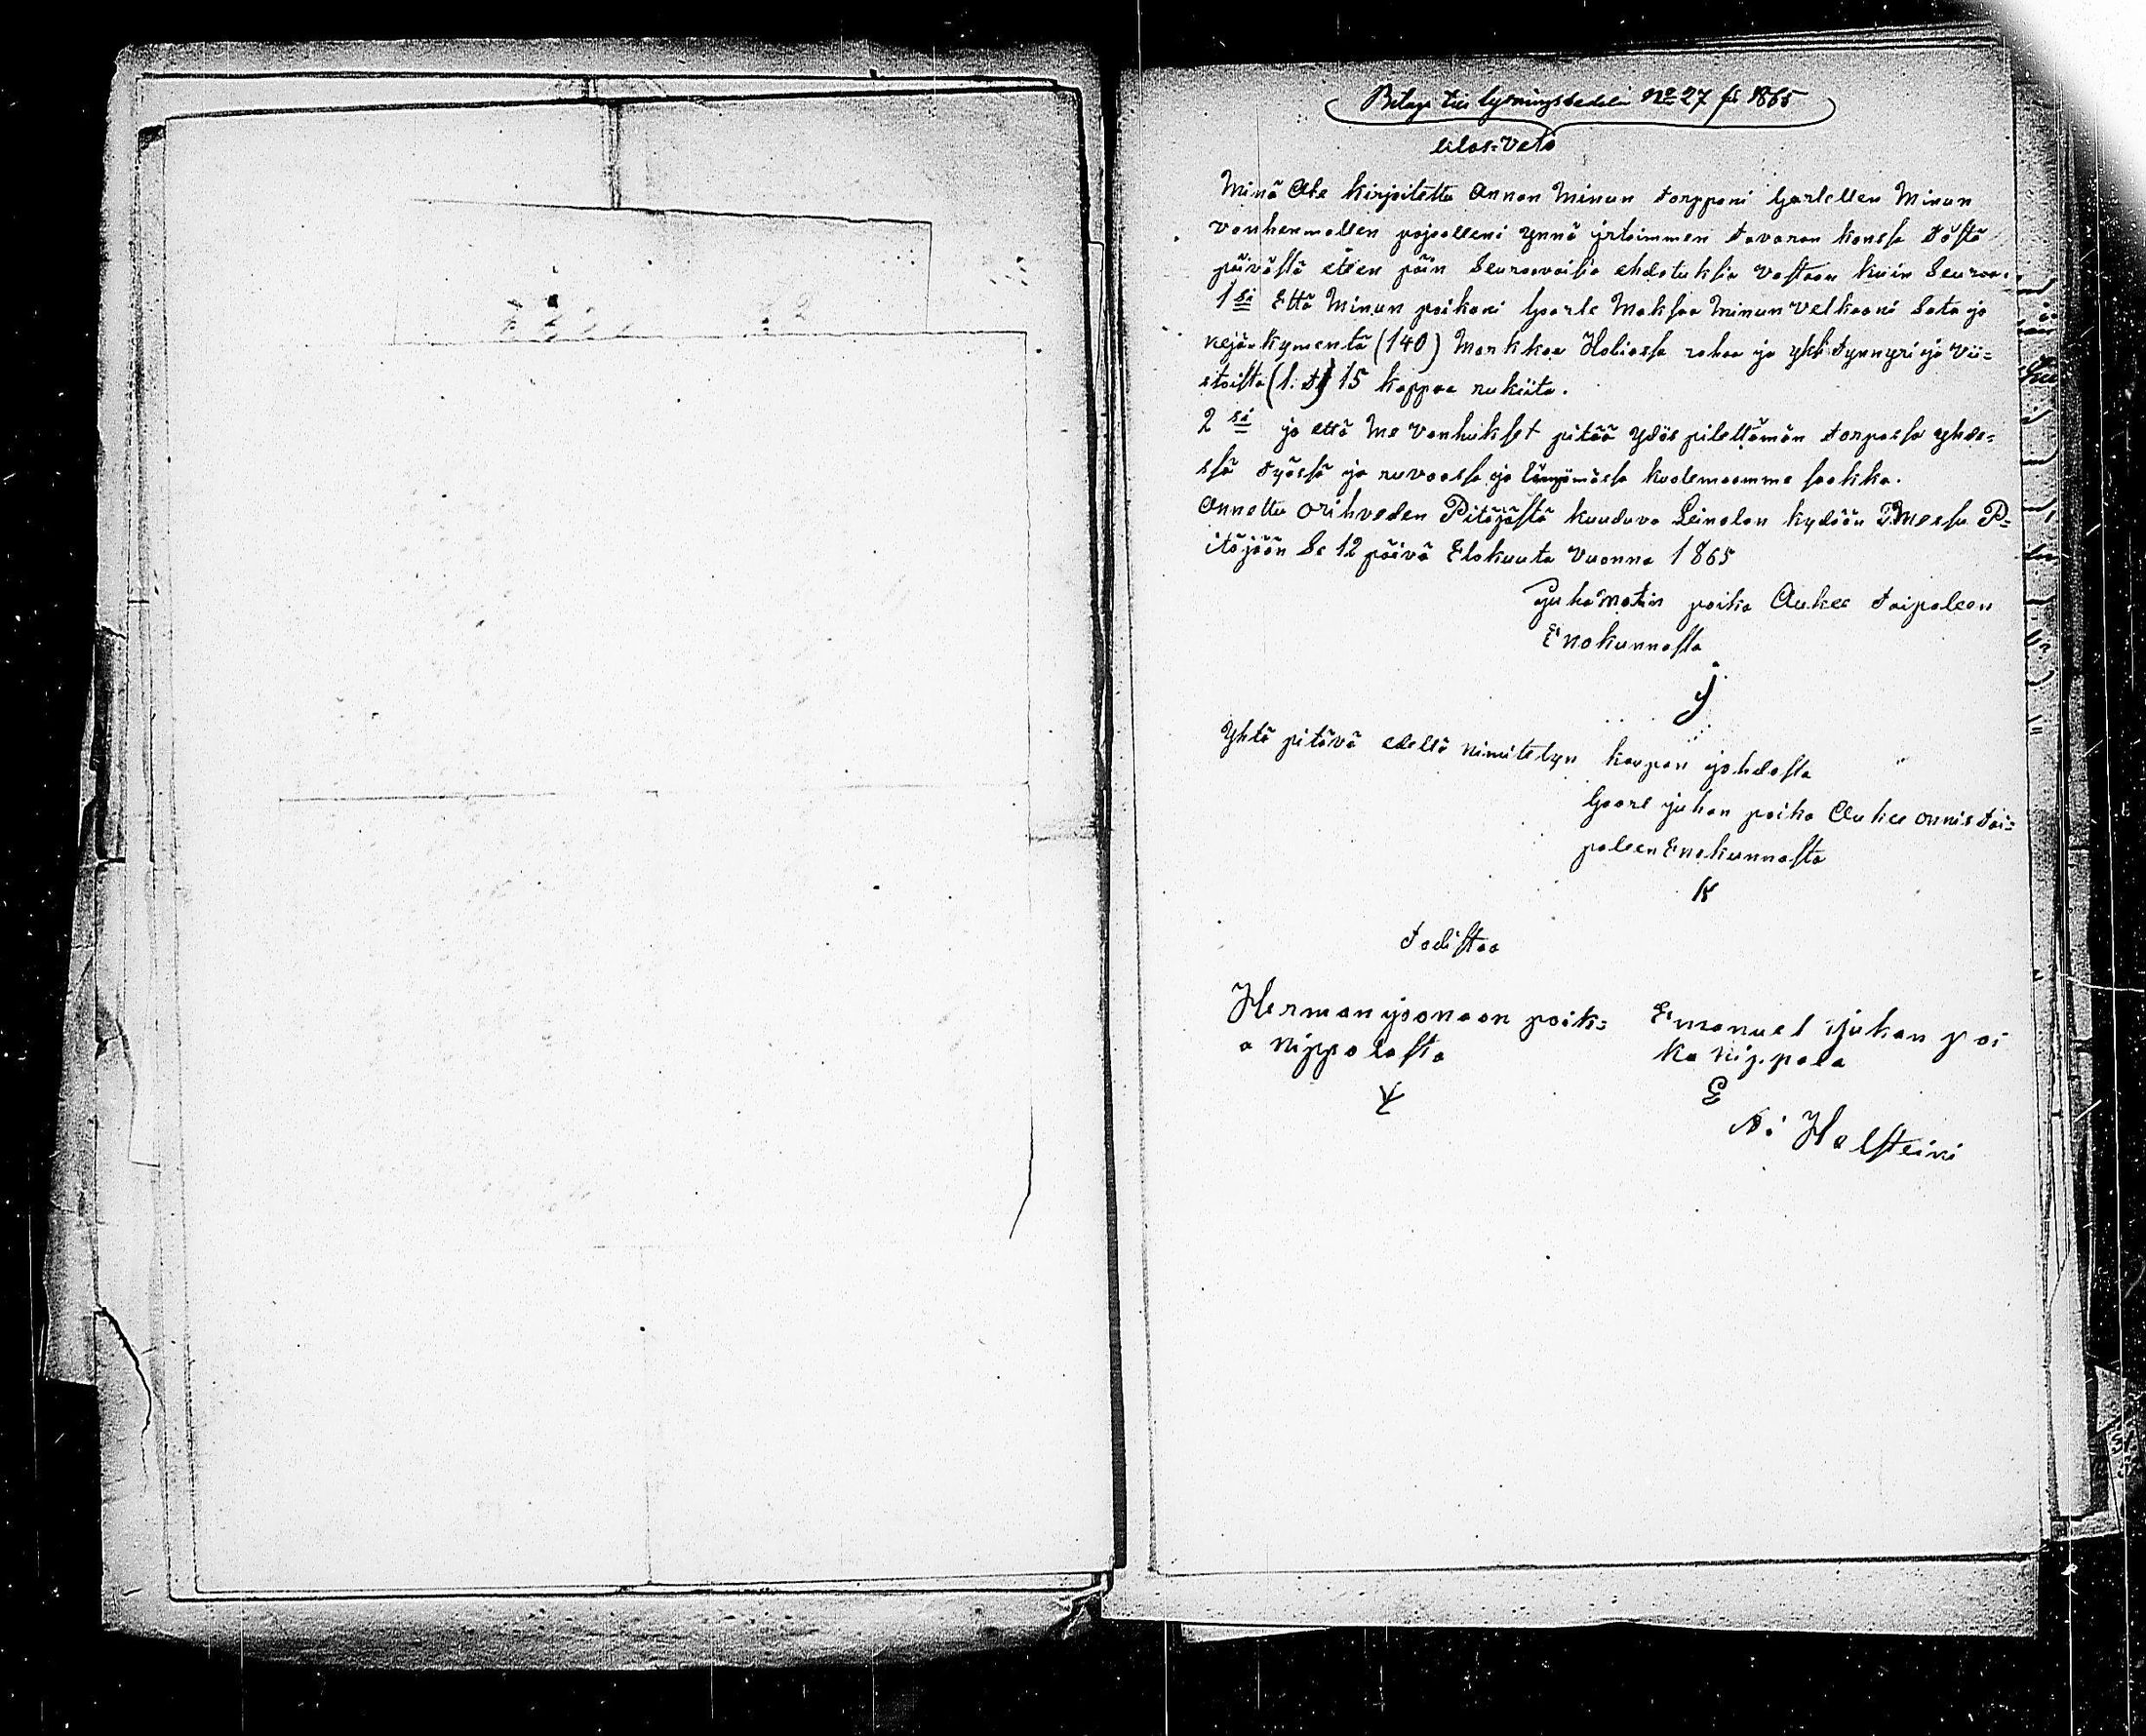 Bilaga till lysningssedeln No 27 för 1865
Ulos-Veto
Minä Ale kirjoitettu Annan Minun torpponi Garlellen Minun
vanhenmallen pojoalleni ynnä jrtaimmen tavaran kanssa tästä
päivästä eteen päin Seuraavaisia ehdotuksia vastaan kuin Seuraa.
1si Että Minun poikani Gaarle Maksaa Minun Velkaani Sata ja
neljä-kymentä (140) Markkaa Hobiassa rahaa ja yksi tynnyri ja vii=
stoista (1. t) 15 kappaa rukiita.
2si ja että me Vanhukset pitää Ydös pitettämän torpassa yhde=
ssä työssä ja ruvoassa ja kuolemaamme saakka.
Annettu Orihveden Pitäjästä kuuduva Leinolan kydöön Messu P=
itäjöön Se 12 päivä Elokuuta Vuonna 1865
Juha Matin poika Aukee taipaleen
Enokunnasta
J
Yhtä pitävä edellä nimitetyn kaupan johdosta
Gaarl juhan poika Aukee onnis tai=
paleen Enokunnasta
K
todistaa
Herman joonaan poik=
a nippolasta
Emanuel juhan poi
ka nippola
E
Ni Halsteini